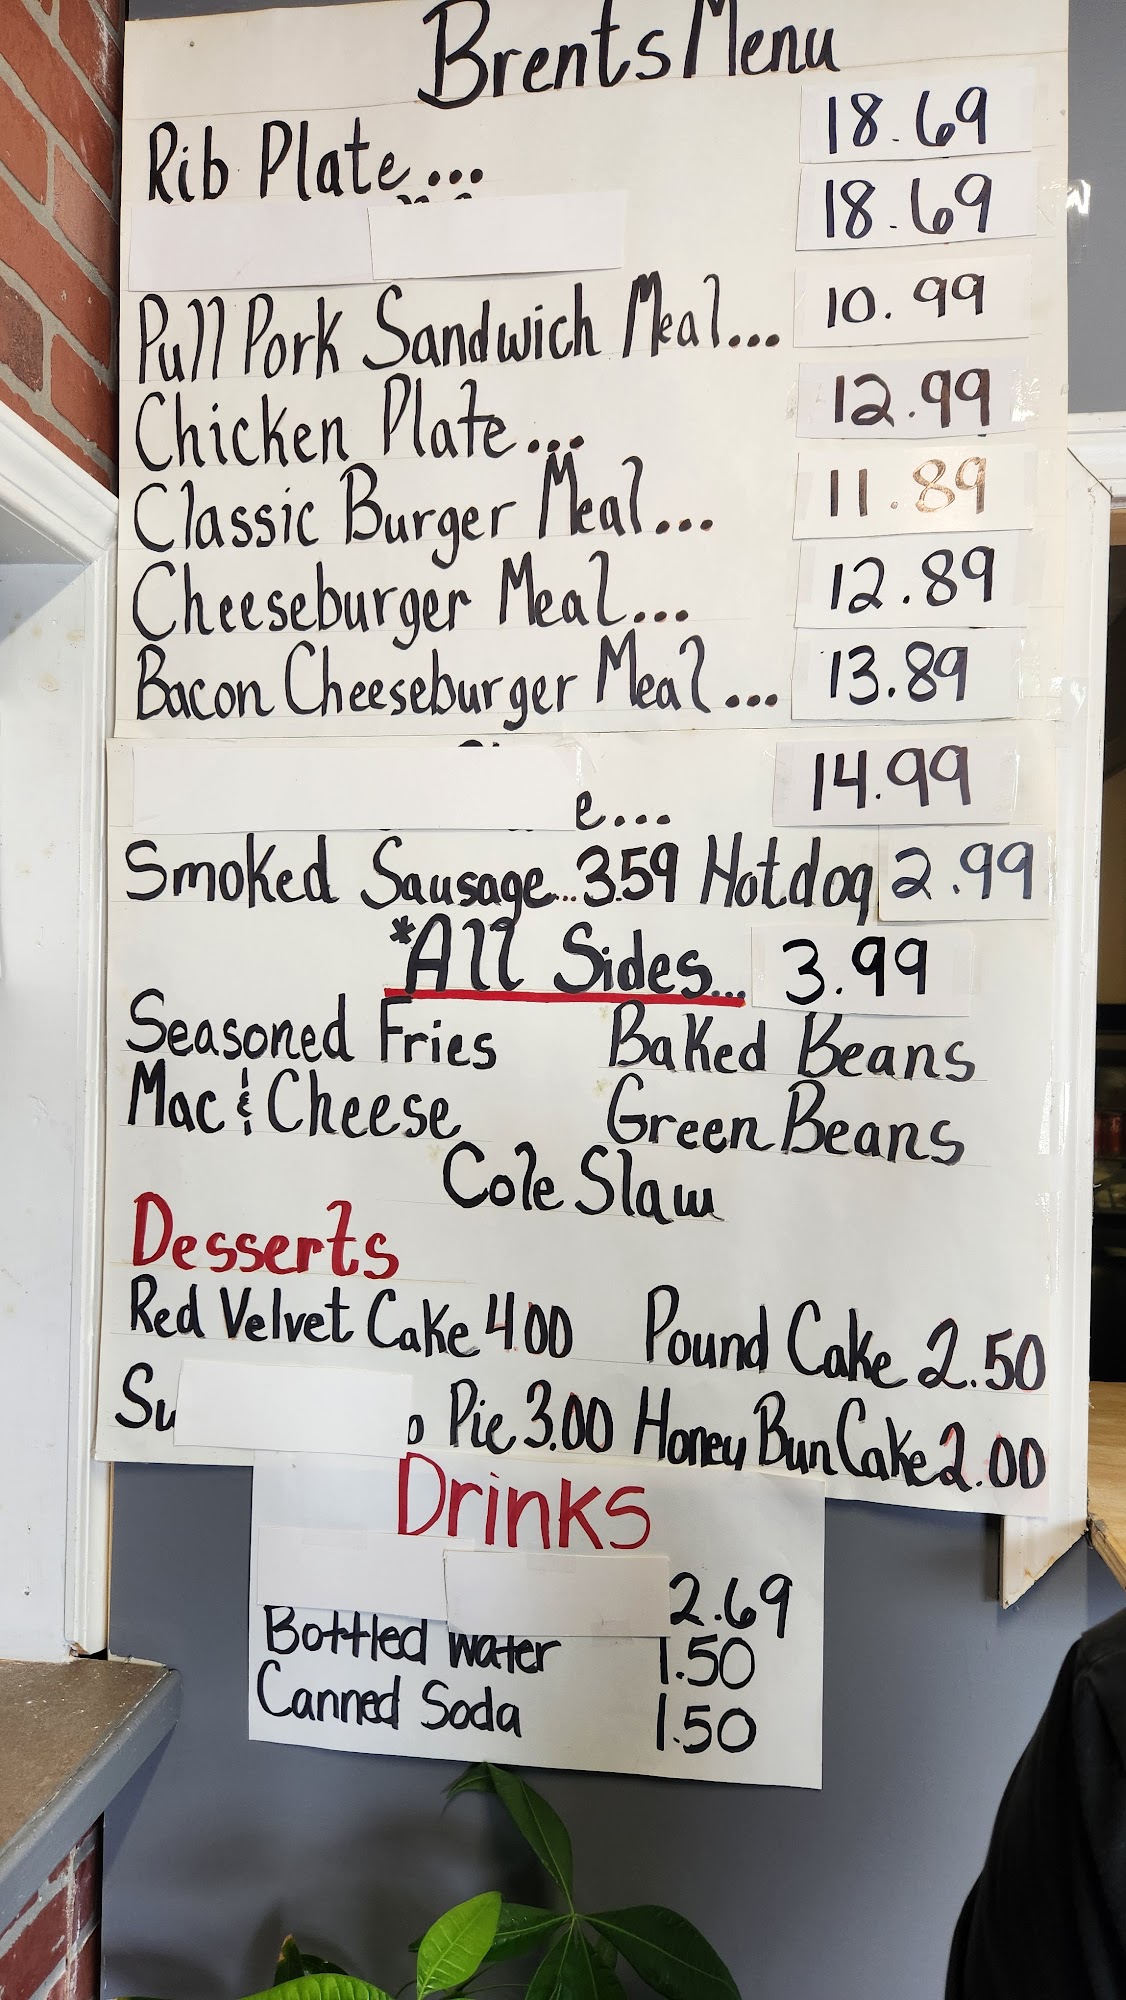 Brents Menu
Rib Plate... 18.69
18.69
Pull Pork Sandwich Meal... 10.99
Chicken Plate... 12.99
Classic Burger Meal... 11.89
Cheeseburger Meal... 12.89
Bacon Cheeseburger Meal... 13.89
14.99
Smoked Sausage... 3.59 Hotdog 2.99
*All Sides... 3.99
Seasoned Fries Baked Beans
Mac & Cheese Green Beans
Cole Slaw
Desserts
Red Velvet Cake 4.00 Pound Cake 2.50
Pie 3.00 Honey Bun Cake 2.00
Drinks
2.69
Bottled Water 1.50
Canned Soda 1.50